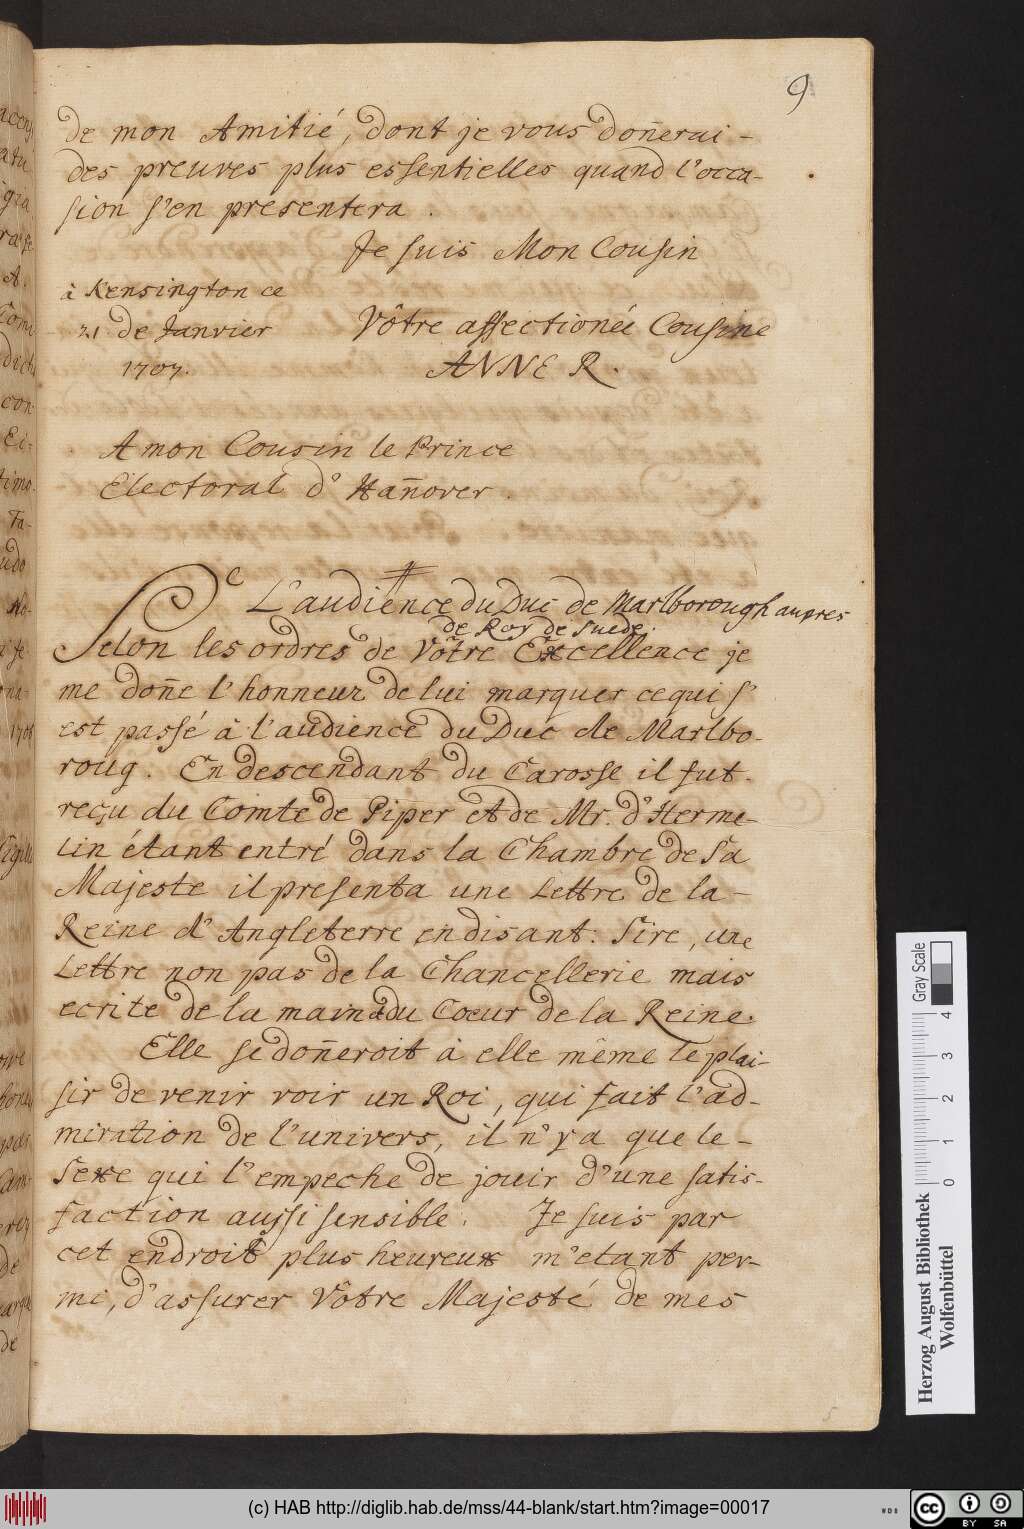 9
de mon Amitié, dont je vous doñerai -
des preuves plus essentielles quand l'occa-
sion s'en presentera.
Je suis Mon Cousin
à Kensington ce
21 de Janvier
1707.
Vôtre affectionéé Cousine
ANNE R.
A mon Cousin le Prince
Electoral d' Hañover.
L'audience du Duc de Marlborough aupres
de Roy de Suede.
Selon les ordres de Vôtre Excellence je
me doñe l'honneur de lui marquer ce qui s'
est passé à l'audience du Duc de Marlbo-
roug. En descendant du Carosse il fut
reçu du Comte de Piper et de Mr. d'Herme-
lin étant entré dans la Chambre de Sa
Majeste il presenta une Lettre de la -
Reine d'Angleterre en disant: Sire, une
Lettre non pas de la Chancellerie mais
ecrite de la main du Coeur de la Reine.
Elle se doñeroit à elle même le plai-
sir de venir voir un Roi, qui fait l'ad-
miration de l'univers, il n'y a que le -
Sexe qui l'empeche de jouir d'une satis-
faction aussi sensible. Je suis par
cet endroit plus heureux m'etant per-
mi, d'assurer Vôtre Majesté de mes
Herzog August Bibliothek
Wolfenbüttel
Gray Scale
0 1 2 3 4
(c) HAB http://diglib.hab.de/mss/44-blank/start.htm?image=00017
cc BY SA